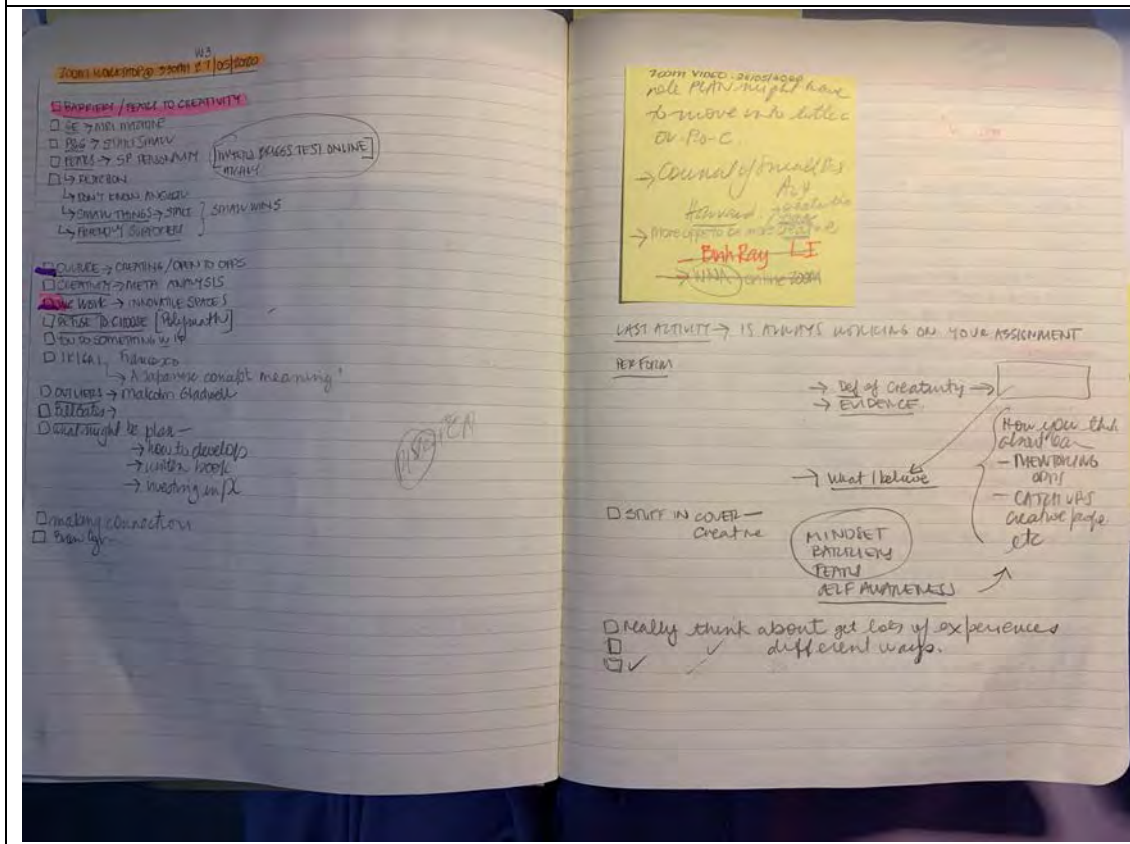 W3
ZOOM WORKSHOP@ 530PM 27/05/2020
BARRIERS / FEARS TO CREATIVITY
GE → MRI MACHINE
P&G → START SMALL
FEARS → SP PERSONALITY
[MYERS BRIGGS TEST ONLINE]
↳ REJECTION
↳ DON'T KNOW ANSWER
↳ SMALL THINGS → START } SMALL WINS
CULTURE → CREATING / OPEN TO OPPS
CREATIVITY → META ANALYSIS
WORK → INNOVATIVE SPACES
REFUSE TO CHOOSE [Polymath]
IKIGAI Francesco
↳ A Japanese concept meaning
OUTLIERS → Malcolm Gladwell
Bill Gates →
What might be plan —
→ how to develop
→ written book
→ investing in
making connection
ZOOM VIDEO: 26/05/2020
note PLAN might have
to move into
or Po-C.
→ Council of Small Bus
Harvard
→ More opps to be more
Binh Ray LI
→ WNA online ZOOM
LAST ACTIVITY → IS ALWAYS WORKING ON YOUR ASSIGNMENT
PERFORM
→ Def of Creativity →
→ EVIDENCE
How you think
about
— MENTORING
OPPS
— CATCH UPS
Creative people
etc
→ What I believe
STUFF IN COVER —
Creative
MINDSET
BARRIERS
FEARS
SELF AWARENESS
Really think about get lots of experiences
different ways.